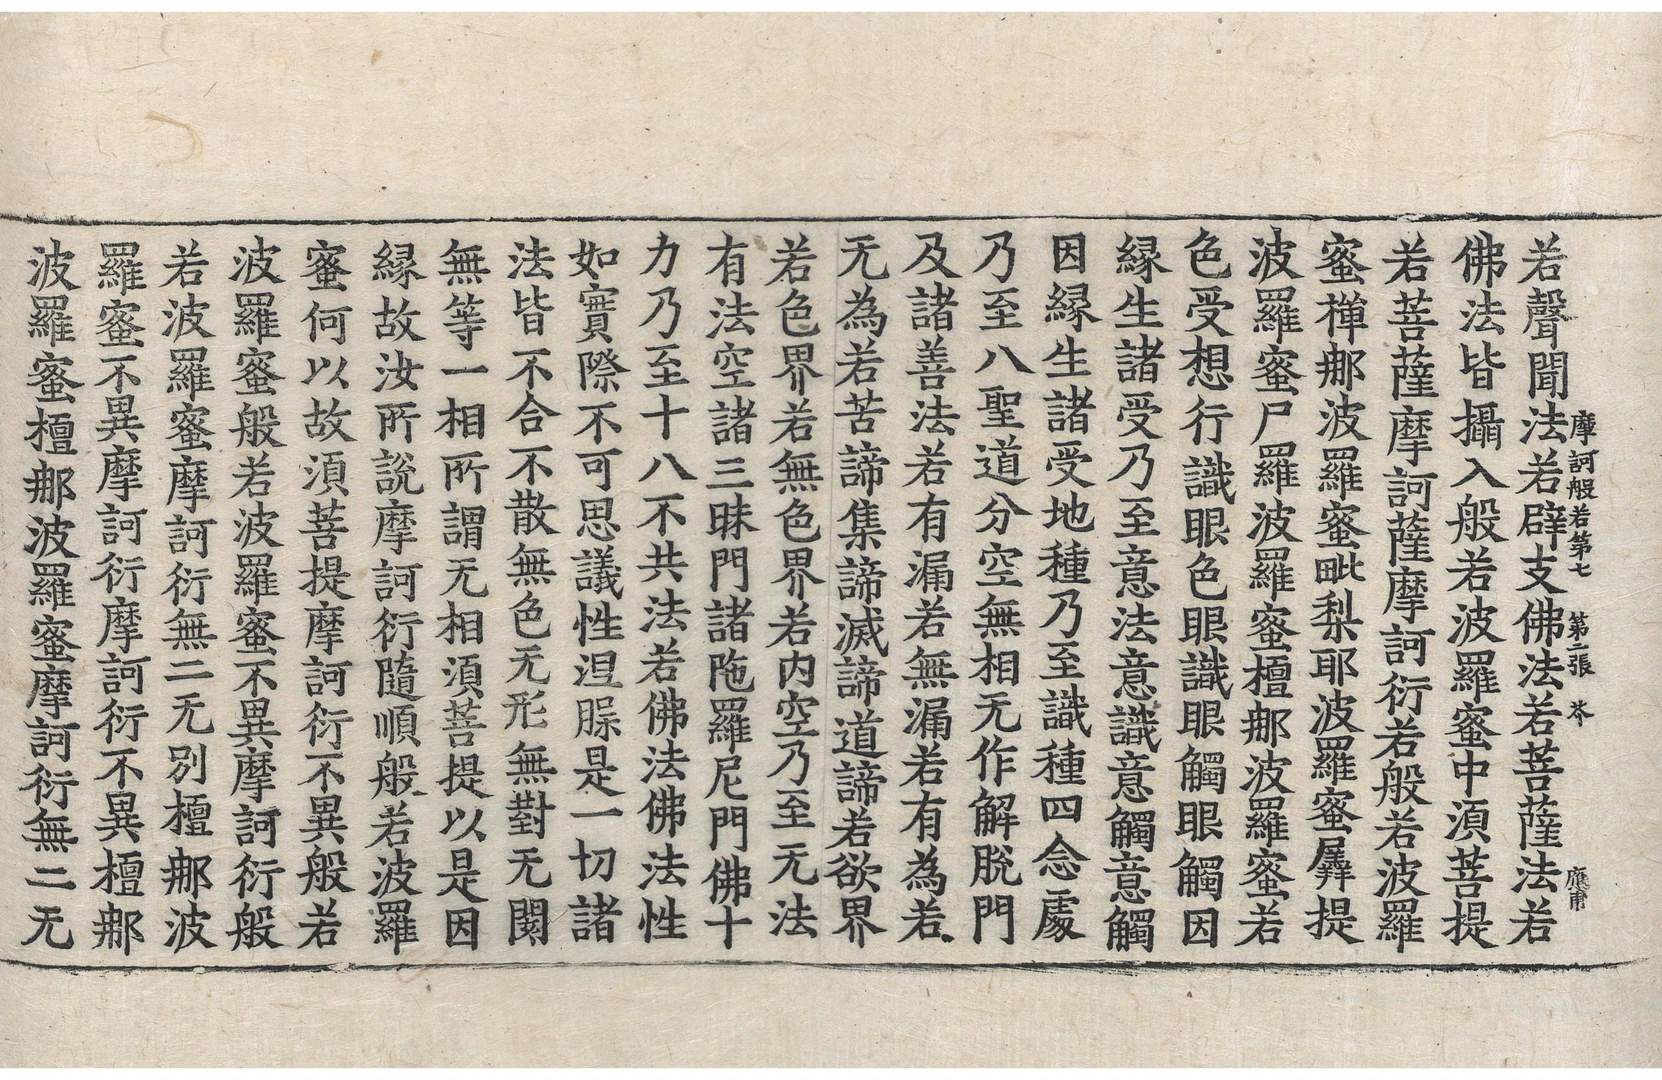 摩訶般若第七 第二張 芥
若聲聞法若辟支佛法若菩薩法若
佛法皆攝入般若波羅蜜中湏菩提
若菩薩摩訶薩摩訶衍若般若波羅
蜜禪那波羅蜜毗梨耶波羅蜜羼提
波羅蜜尸羅波羅蜜檀那波羅蜜若
色受想行識眼色眼識眼觸眼觸因
緣生諸受乃至意法意識意觸意觸
因緣生諸受地種乃至識種四念處
乃至八聖道分空無相无作解脫門
及諸善法若有漏若無漏若有為若
无為若苦諦集諦滅諦道諦若欲界
若色界若無色界若內空乃至无法
有法空諸三昧門諸陁羅尼門佛十
力乃至十八不共法若佛法佛法性
如實際不可思議性涅槃是一切諸
法皆不合不散無色无形無對无閡
無等一相所謂无相湏菩提以是因
緣故汝所說摩訶衍隨順般若波羅
蜜何以故湏菩提摩訶衍不異般若
波羅蜜般若波羅蜜不異摩訶衍般
若波羅蜜摩訶衍無二无別檀那波
羅蜜不異摩訶衍摩訶衍不異檀那
波羅蜜檀那波羅蜜摩訶衍無二无